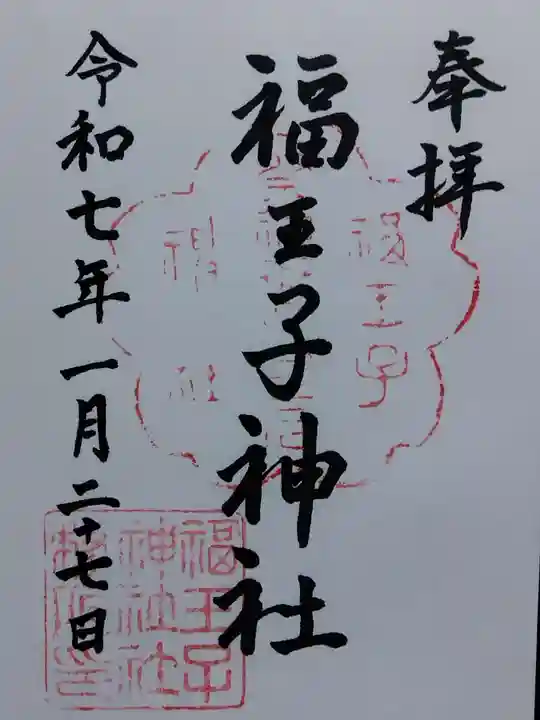 奉拝
福王子神社
令和七年一月二十七日
福王子
神社
福王子
神社社
務所印